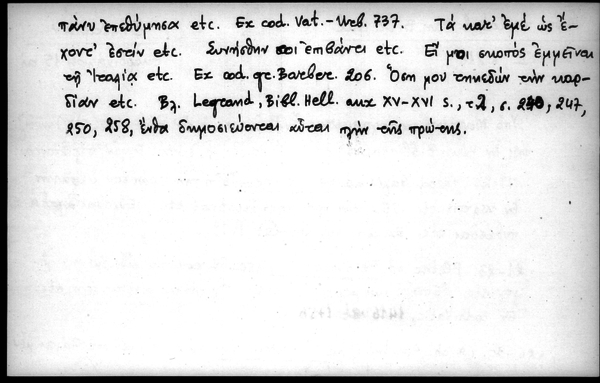 πάνυ ἐπεθύμησα etc. Ex cod. Vat.-Urb. 737. Τά κατ' ἐμέ ὡς ἔ-
χοντ' ἐστίν etc. Συνήσθην σοι ἐπιβάντι etc. Εἴ μοι σκοπός ἐμμεῖναι
τῇ Ἰταλίᾳ etc. Ex cod. gr. Barber. 206. Ὅση μου τηκεδών τήν καρ-
δίαν etc. Βλ. Legrand, Bibl. Hell. aux XV-XVI s., τ. 2, σ. 240, 247,
250, 258, ἔνθα δημοσιεύονται αὗται πλήν τῆς πρώτης.